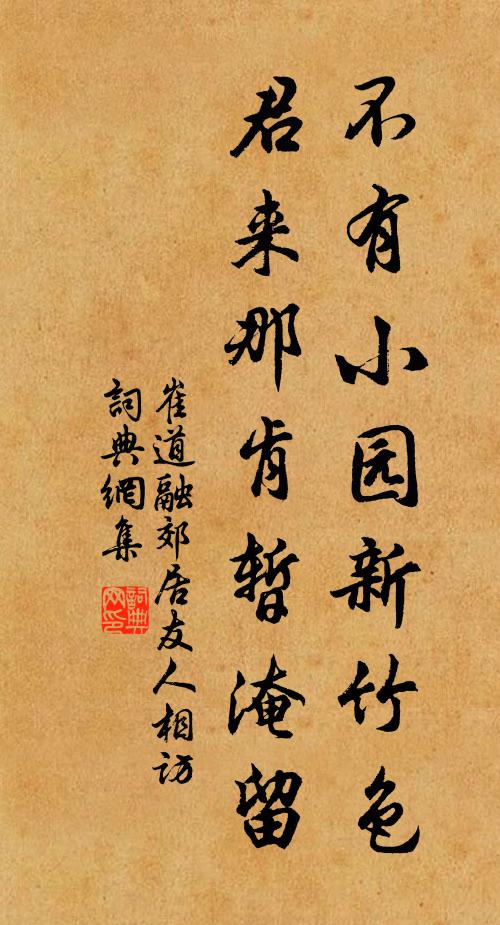 不有小园新竹色
君来那肯暂淹留
崔道融郊居友人相访
詞典網集
詞典网印